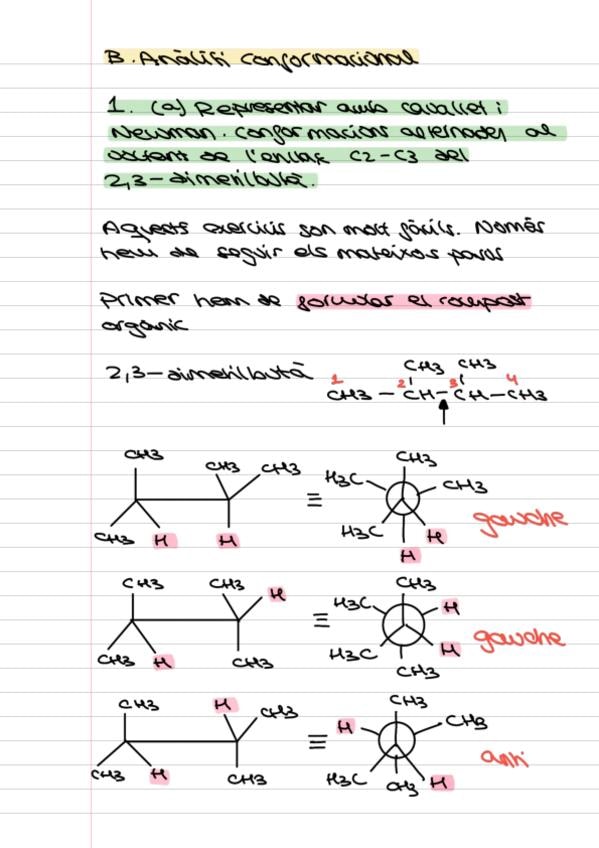 B. Anàlisi conformacional
1. (a) Representar amb cavallet i
Newman. conformacions alternades al
voltant de l'enllaç C2-C3 del
2,3-dimetilbutà.
Aquests exercicis son molt fàcils. Només
hem de seguir els mateixos passos
Primer hem de formular el compost
orgànic
CH3 CH3
2,3-dimetilbutà 1 2 3 4
CH3 - CH - CH - CH3
CH3 CH3 CH3 ≡ CH3
H3C CH3
CH3 H H H3C H gauche
H
CH3 CH3 H ≡ CH3
H3C H
CH3 H CH3 H3C H gauche
CH3
CH3 H CH3 ≡ CH3
H CH3
CH3 H CH3 H3C CH3 H anti